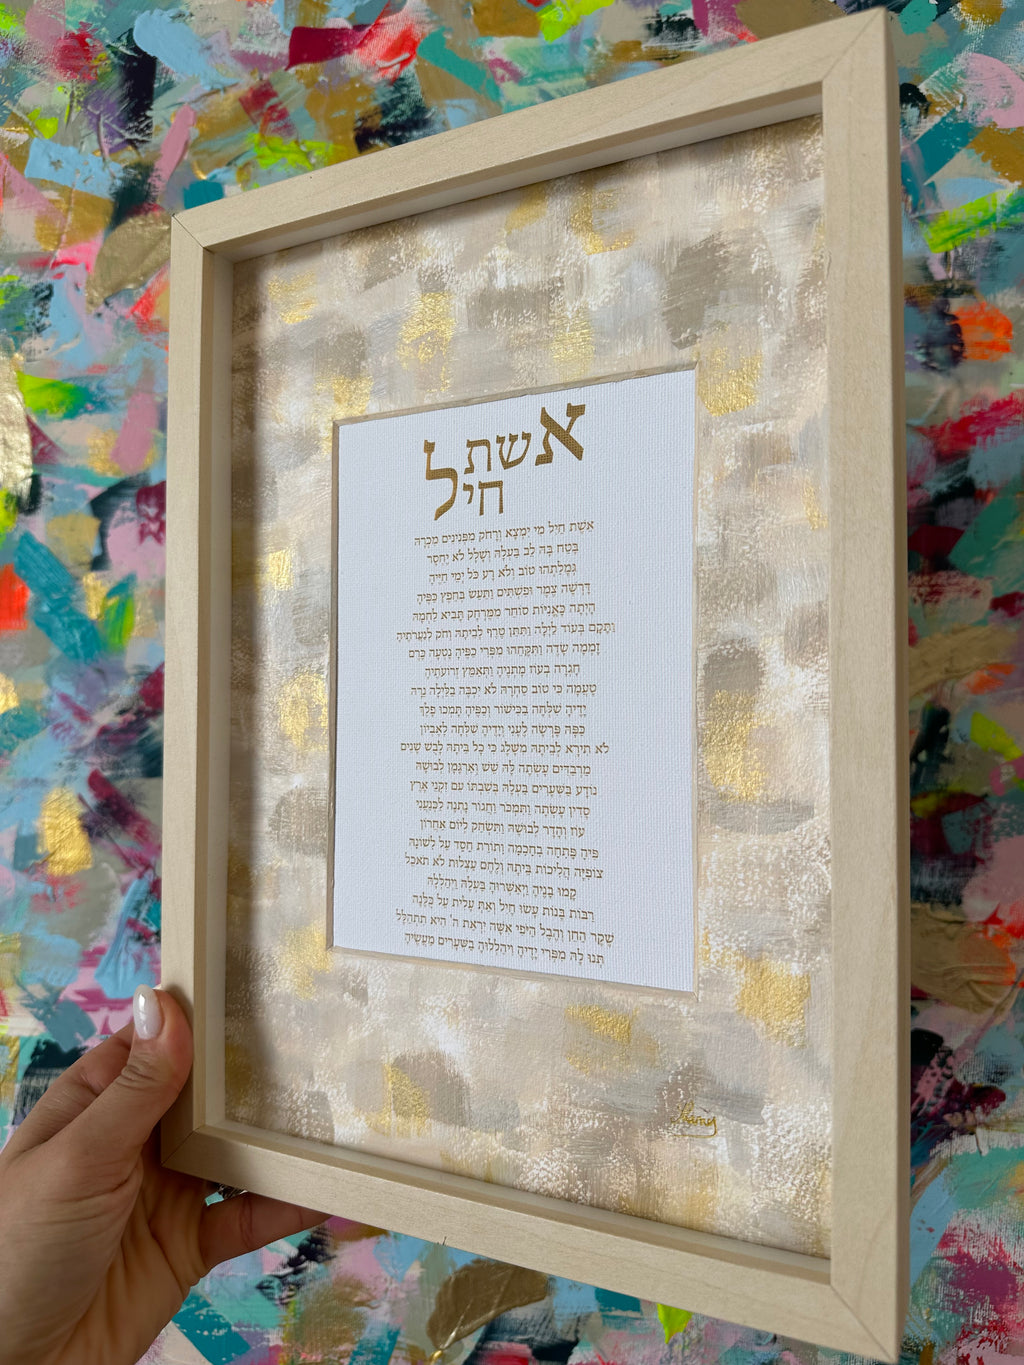 אשת
חיל
אֵשֶׁת חַיִל מִי יִמְצָא וְרָחֹק מִפְּנִינִים מִכְרָהּ
בָּטַח בָּהּ לֵב בַּעְלָהּ וְשָׁלָל לֹא יֶחְסָר
גְּמָלַתְהוּ טוֹב וְלֹא רָע כֹּל יְמֵי חַיֶּיהָ
דָּרְשָׁה צֶמֶר וּפִשְׁתִּים וַתַּעַשׂ בְּחֵפֶץ כַּפֶּיהָ
הָיְתָה כָּאֳנִיּוֹת סוֹחֵר מִמֶּרְחָק תָּבִיא לַחְמָהּ
וַתָּקָם בְּעוֹד לַיְלָה וַתִּתֵּן טֶרֶף לְבֵיתָהּ וְחֹק לְנַעֲרֹתֶיהָ
זָמְמָה שָׂדֶה וַתִּקָּחֵהוּ מִפְּרִי כַפֶּיהָ נָטְעָה כָּרֶם
חָגְרָה בְעוֹז מָתְנֶיהָ וַתְּאַמֵּץ זְרוֹעֹתֶיהָ
טָעֲמָה כִּי טוֹב סַחְרָהּ לֹא יִכְבֶּה בַלַּיְלָה נֵרָהּ
יָדֶיהָ שִׁלְּחָה בַכִּישׁוֹר וְכַפֶּיהָ תָּמְכוּ פָלֶךְ
כַּפָּהּ פָּרְשָׂה לֶעָנִי וְיָדֶיהָ שִׁלְּחָה לָאֶבְיוֹן
לֹא תִירָא לְבֵיתָהּ מִשָּׁלֶג כִּי כָל בֵּיתָהּ לָבֻשׁ שָׁנִים
מַרְבַדִּים עָשְׂתָה לָּהּ שֵׁשׁ וְאַרְגָּמָן לְבוּשָׁהּ
נוֹדָע בַּשְּׁעָרִים בַּעְלָהּ בְּשִׁבְתּוֹ עִם זִקְנֵי אָרֶץ
סָדִין עָשְׂתָה וַתִּמְכֹּר וַחֲגוֹר נָתְנָה לַכְּנַעֲנִי
עוֹז וְהָדָר לְבוּשָׁהּ וַתִּשְׂחַק לְיוֹם אַחֲרוֹן
פִּיהָ פָּתְחָה בְחָכְמָה וְתוֹרַת חֶסֶד עַל לְשׁוֹנָהּ
צוֹפִיָּה הֲלִיכוֹת בֵּיתָהּ וְלֶחֶם עַצְלוּת לֹא תֹאכֵל
קָמוּ בָנֶיהָ וַיְאַשְּׁרוּהָ בַּעְלָהּ וַיְהַלְלָהּ
רַבּוֹת בָּנוֹת עָשׂוּ חָיִל וְאַתְּ עָלִית עַל כֻּלָּנָה
שֶׁקֶר הַחֵן וְהֶבֶל הַיֹּפִי אִשָּׁה יִרְאַת ה' הִיא תִתְהַלָּל
תְּנוּ לָהּ מִפְּרִי יָדֶיהָ וִיהַלְלוּהָ בַשְּׁעָרִים מַעֲשֶׂיהָ